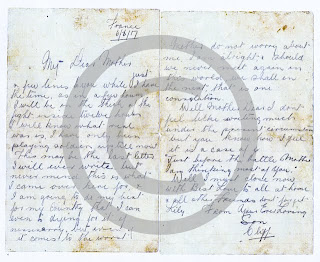 France
6/6/17
My Dear Mother
just
a few lines here while I have
the time, as in a few hours
I will be in the thick of the
fight inside twelve hours
I will know what real
war is, I have only been
playing soldier up till now
This may be the last letter
I will ever write but
never mind this is what
I came over here for
I am going to do my best
for my country that I can
even to dying for it if
necessary, but even if
it comes to the worst
Mother do not worry about
me I'm alright & should
we never meet again in
this world we shall in
the next, that is one
consolation.
Well Mother dear I don't
feel like writing much
under the present circumstances
but you know how I feel
it is a case of
Just before the battle Mother
I'm thinking most of you.
Well I must close now
with best love to all at home
& all other friends don't forget
Lily From Your Everloving
Son
Cliff